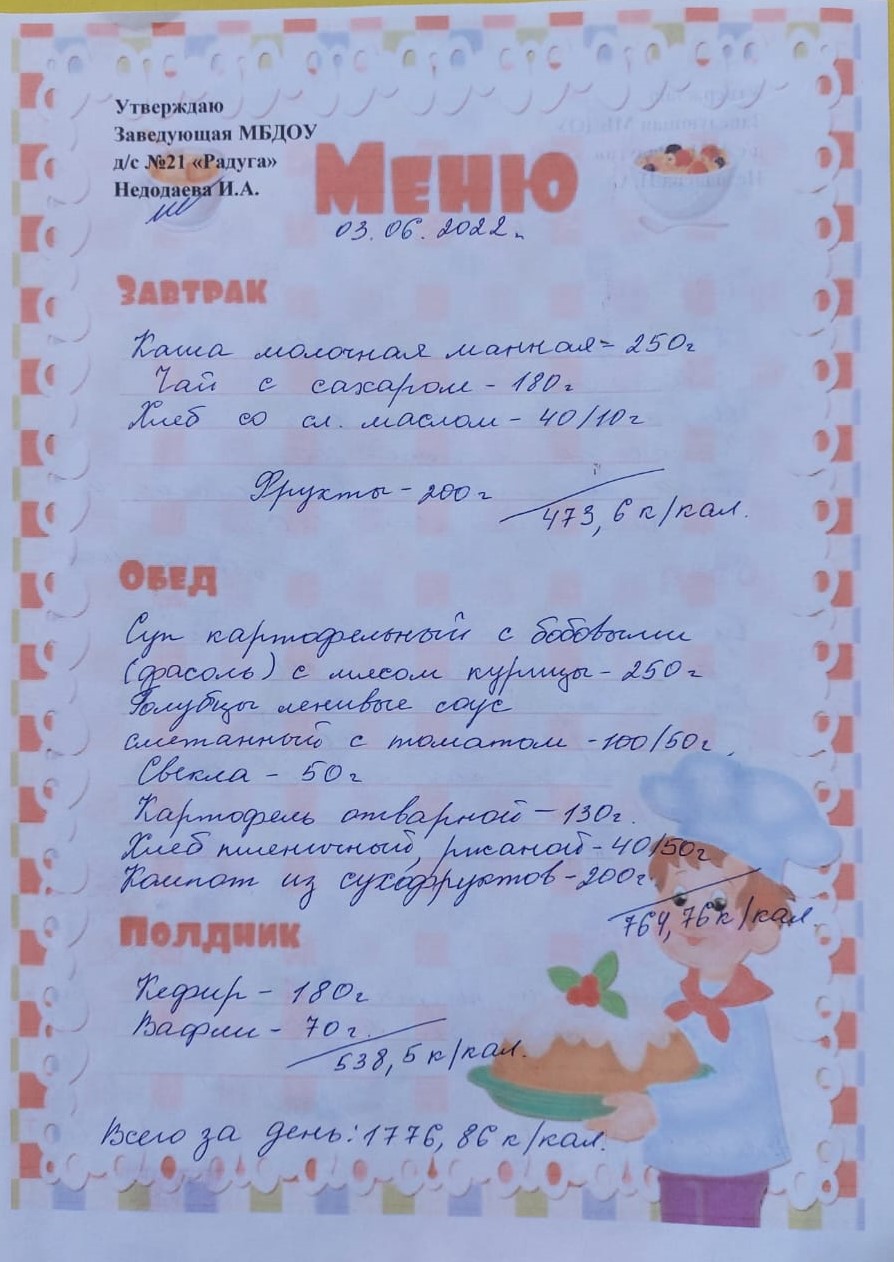 Утверждаю
Заведующая МБДОУ
д/с №21 «Радуга»
Недодаева И.А.
Меню
03.06.2022г.
Завтрак
Каша молочная манная - 250г
Чай с сахаром - 180г
Хлеб со сл. маслом - 40/10г
Фрукты - 200г
473,6 к/кал.
Обед
Суп картофельный с бобовыми
(фасоль) с мясом курицы - 250г
Голубцы ленивые соус
сметанный с томатом - 100/50г
Свекла - 50г
Картофель отварной - 130г.
Хлеб пшеничный, ржаной - 40/50г
Компот из сухофруктов - 200г.
764,76 к/кал
Полдник
Кефир - 180г
Вафли - 70г.
538,5 к/кал.
Всего за день: 1776,86 к/кал.